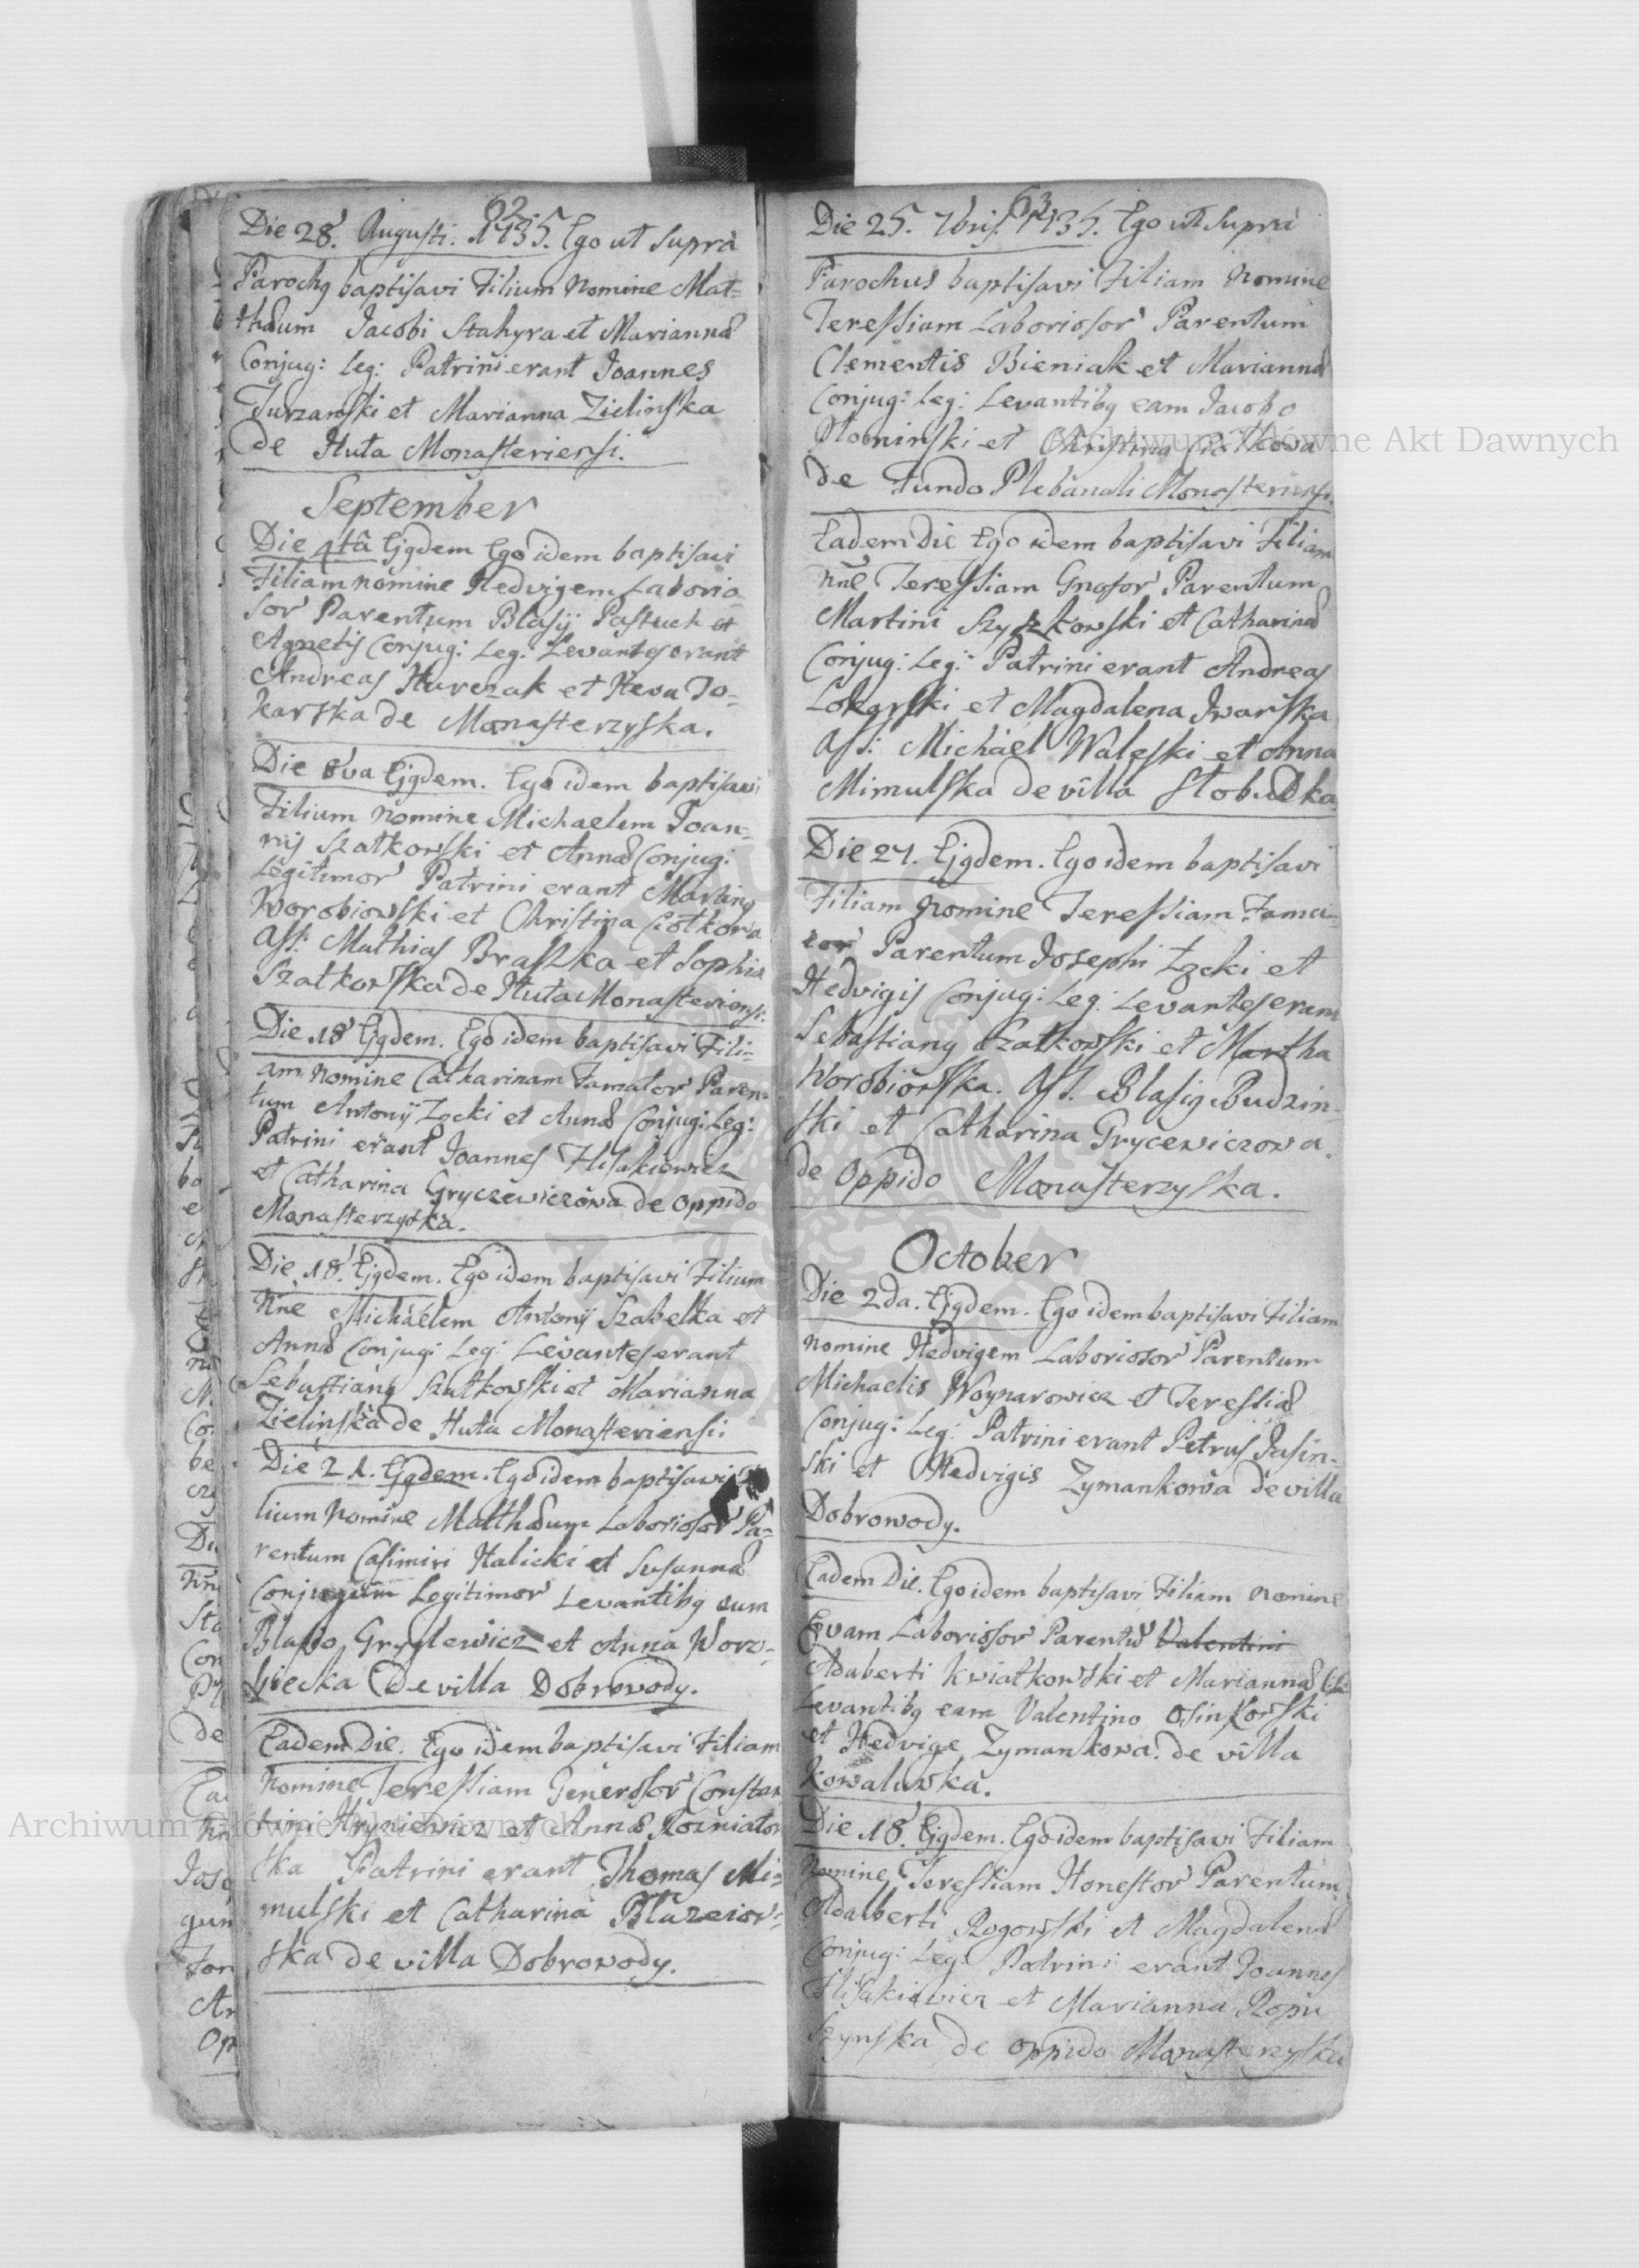 62
Die 28. Augusti. 1735. Ego ut supra
Parochg baptisavi Filium Nomine Mat=
thæum Jacobi Stahyra et Mariannæ
Conjug: Leg: Patrini erant Joannes
Turzanski et Marianna Zielinska
de Huta Monasteriensi.
September
Die 4tâ Ejgdem Ego idem baptisavi
Filiam nomine Hedvigem Laborio-
sor Parentum Blasij Pastuch et
Agnetis Conjug: Leg: Levantes erant
Andreas Hurczak et Heva To-
karska de Monasterzyska.
Die 8va Ejgdem. Ego idem baptisavi
Filium Nomine Michaelem Joan-
nij Szatkowski et Annæ Conjug:
Legitimor Patrini erant Marting
Worobiowski et Christina Ciotkowa
Ass: Mathias Braszka et Sophia
Szatkowska de Huta Monasteriensi.
Die 18 Ejgdem. Ego idem baptisavi Fili-
am Nomine Catharinam Famator Paren-
tum Antonij Zęcki et Annæ Conjug: Leg:
Patrini erant Joannes Hisakiewicz
et Catharina Gryczewiczowa de Oppido
Monasterzyska.
Die 18. Ejgdem. Ego idem baptisavi Filium
Nne Michaelem Antonij Szabelka et
Annæ Conjug: Leg: Levantes erant
Sebastiang Szatkowski et Marianna
Zielinska de Huta Monasteriensi.
Die 21. Ejgdem. Ego idem baptisavi
lium Nomine Matthæum Laboriosor Pa-
rentum Casimiri Halicki et Susannæ
Conjugum Legitimor Levantibg eum
Blasio Gryglewicz et Anna Woro-
biecka De villa Dobrowody.
Eadem Die. Ego idem baptisavi Filiam
Nomine Teressiam Generosor Constan
tini Hryniewicz et Annæ Rozniatow
ska Patrini erant Thomas Mi=
mulski et Catharina Błazeiow-
ska de villa Dobrowody.
63
Die 25. 7bris. 1735. Ego ut supra
Parochus baptisavi Filiam Nomine
Teressiam Laboriosor Parentum
Clementis Bieniak et Mariannæ
Conjug: Leg: Levantibg eam Jacobo
Słominski et Christina Ciotkowa
de Fundo Plebanali Monasteriensi.
Eadem Die Ego idem baptisavi Filiam
Nne Teressiam Gnosor Parentum
Martini Szyszkowski et Catharinæ
Conjug: Leg: Patrini erant Andreas
et Magdalena Iwanska
Ass: Michael Waleski et Anna
Mimulska de villa Słobudka
Die 27. Ejgdem. Ego idem baptisavi
Filiam Nomine Teressiam Fama-
tor Parentum Josephi Zęcki et
Hedvigis Conjug: Leg: Levantes erant
Sebastiang Szatkowski et Martha
Worobiowska. Ass. Blasig Budzin-
ski et Catharina Grycewiczowa.
de Oppido Monasterzyska.
October
Die 2da. Ejgdem. Ego idem baptisavi Filiam
nomine Hedvigem Laboriosor Parentum
Michaelis Woynarowicz et Teressiæ
Conjug: Leg: Patrini erant Petrus Jasin-
ski et Hedvigis Zymankowa de villa
Dobrowody.
Eadem Die. Ego idem baptisavi Filiam Nomine
Evam Laboriosor Parentu Valentini
Adalberti Kwiatkowski et Mariannæ
Levantibg eam Valentino Osinkowski
et Hedvige Zymankowa. de villa
Kowalowka.
Die 18. Ejgdem. Ego idem baptisavi Filiam
Nomine Teressiam Honestor Parentum
Adalberti Rogowski et Magdalenæ
Conjug: Leg: Patrini erant Joannes
Hlisakiewicz et Marianna Ropu
szynska de oppido Monasterzyska
Archiwum Główne Akt Dawnych
Archiwum Główne Akt Dawnych